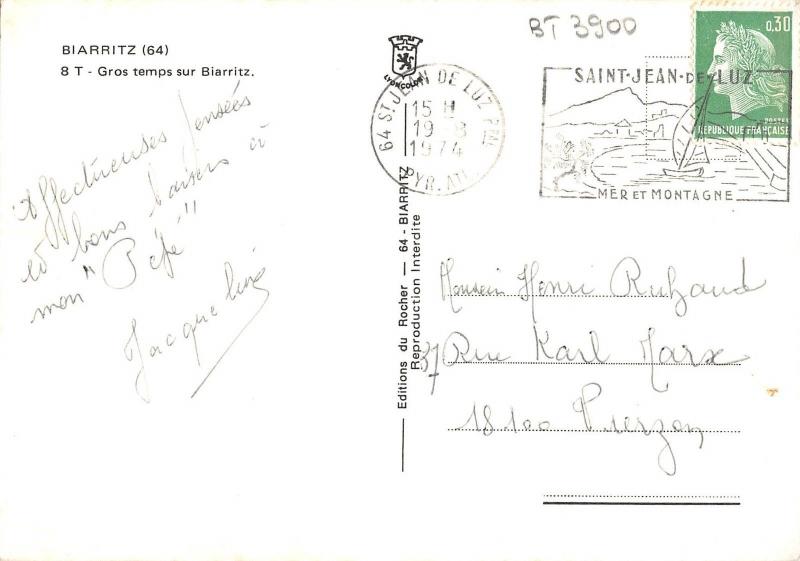 BT 3900
BIARRITZ (64)
8 T - Gros temps sur Biarritz.
LYONCOLOR
Affectueuses pensées
et bons baisers à
mon "Pépé"
Jacqueline
64 ST JEAN DE LUZ PPAL
15 H
19 - 8
1974
PYR. ATL.
SAINT-JEAN-DE-LUZ
MER ET MONTAGNE
0,30
POSTES
REPUBLIQUE FRANÇAISE
Editions du Rocher — 64 - BIARRITZ
Reproduction Interdite
Monsieur Henri
37 Rue Karl Marx
18100 Vierzon